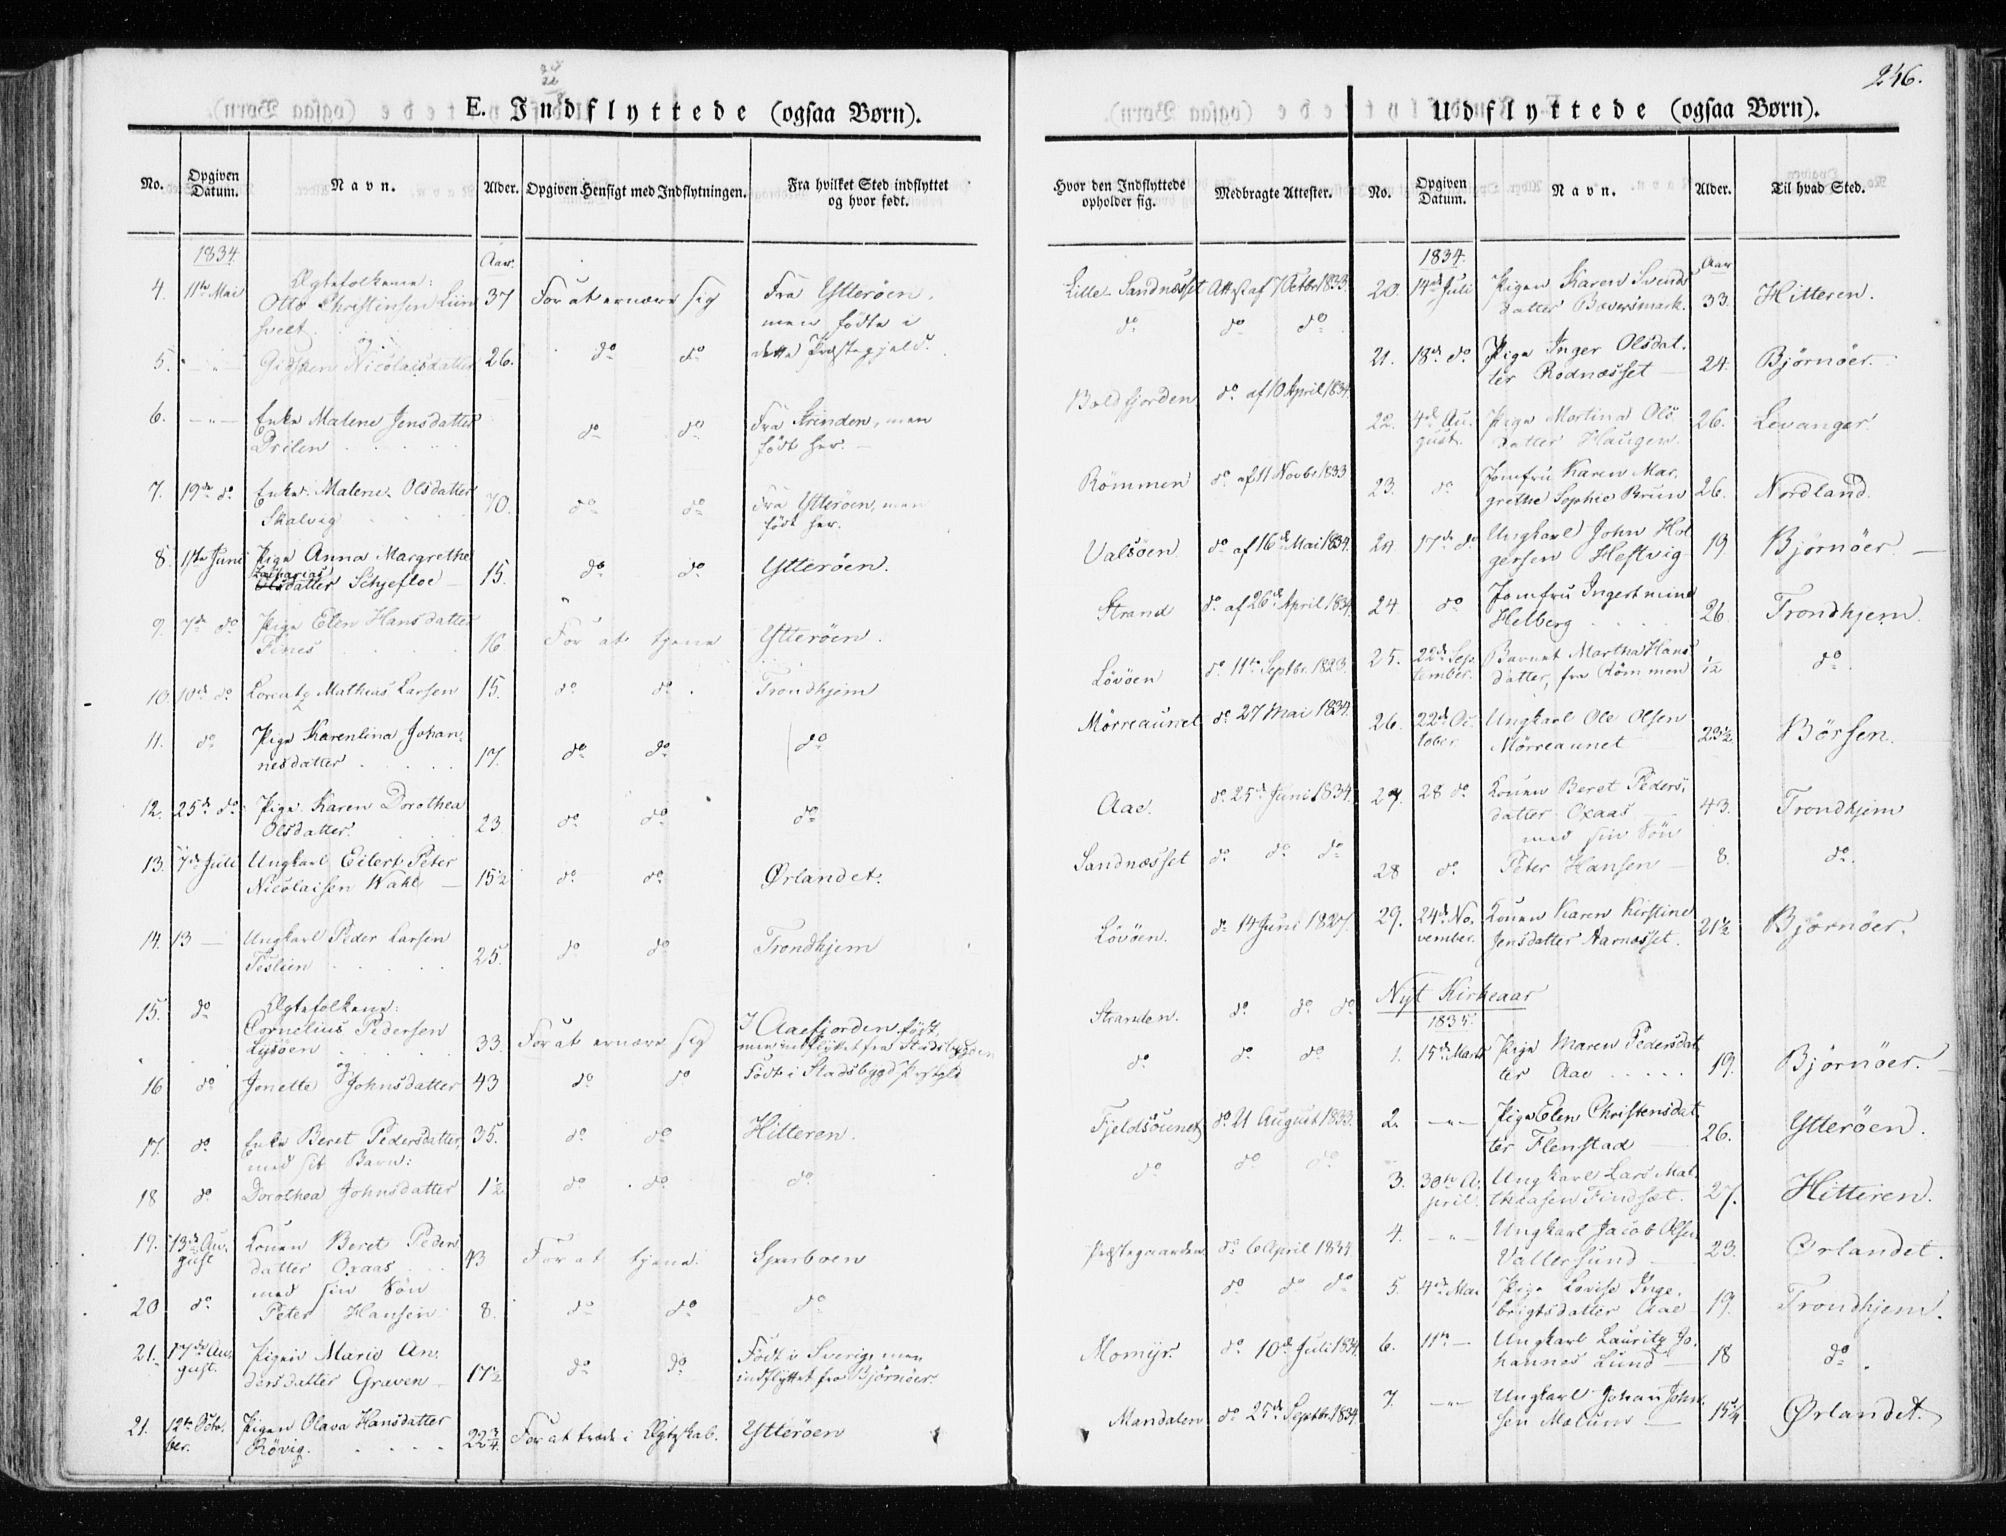 246.
E. Indflyttede (ogsaa Børn).
No. Opgiven Datum. Navn. Alder. Opgiven Hensigt med Indflytningen. Fra hvilket Sted indflyttet og hvor født.
1834. Aar.
4. 11te Mai Ægtefolkene:
Otto Christensen 37 For at ernære sig Fra Ytterøen,
men födte i
og dette Præstegjeld.
5. - " - Nicolaisdatter 26. do do
6. - " - Enke Malene Jensdatter do do Fra Strinden, men
Drilen födt her. -
7. 19de do Enke Malene Olsdatter 70. do do Fra Ytterøen, men
Skalvig födt her.
8. Juni Pige Anna Margrethe
Zacharias
Olsdatter Schjefloe 15. do do Ytterøen.
9. 7de do Pige Elen Hansdatter
Fines 16 For at tjene Ytterøen.
10. 10de do Lorentz Mathias Larsen 15. do do Trondhjem
11. do Pige Karenlina Johan-
nesdatter 17. do do do
12. 25de do Pige Karen Dorothea
Olsdatter. 23. do do do
13. 7de Juli Ungkarl Eilert Peter
Nicolaisen Wahl 15½ do do Ørlandet.
14. 13 - Ungkarl Peder Larsen
25. do do Trondhjem
15. do Ægtefolkene:
Cornelius Pedersen I Aaefjorden født,
Lysöen 33. For at ernære sig men indflyttet fra Stadsbygden
og
16 do Jonetta Johnsdatter 43 do do Födt i Stadsbygd
17. do Enke Beret Pedersdatter, 35. do do Hitteren.
med sit Barn:
18 do Dorothea Johnsdatter 1½ do do do
19. 13de Au- Konen Beret Peders
gust datter Oxaas 43 For at tjene Sparboen
med sin Sön
20 do Peter Hansen 8. do do do
21. 17de Au- Pigen Maria An- Födt i Sverig, men
gust. dersdatter Graven 17½ do do indflyttet fra Bjørnöer.
21. 12te Octo- Pigen Olava Hansdatter
ber. Rövig. 22¾ For at træde i Ægtskab. Ytterøen
Udflyttede (ogsaa Børn).
Hvor den Indflyttede opholder sig. Medbragte Attester. No. Opgiven Datum. Navn. Alder. Til hvad Sted.
1834. Aar
Lille Sandnæsset Attest af 7 Octbr 1833. 20. 14de Juli Pigen Karen Svends
do do do datter Bæversmark. 33. Hitteren.
21. 18de do Pige Inger Olsdat-
ter Rodnæsset 24. Björnöer.
Boldfjorden do af 10 April 1834. 22. 4de Au- Pige Martina Ols
gust. datter Haugen 26. Levanger
Römmen do af 11 Novbr 1833 23. do Jomfru Karen Mar-
grethe Sophie Brun 26. Nordland.
Valsöen do af 16de Mai 1834. 24 17de do Ungkarl John Hol
gersen Heftvig 19 Bjørnöer.
Strand do af 26de April 1834. 24. do Jomfru Ingertmine
Helberg 26 Trondhjem.
Lövöen do 11te Septbr. 1823. 25. 22de Sep- Barnet Martha Hans
tember. datter, fra Römmen do.
Mörreaunet do 27 Mai 1834. 26. 22de Oc- Ungkarl Ole Olsen
tober. Mörreaunet 23½ Börsen.
Aae. do 25de Juni 1834. 27. 28 do Konen Beret Peders-
datter Oxaas 43. Trondhjem
med sin Sön
Sandnæsset do do do 28 do Peter Hansen 8. do.
Lövöen. do 14 Juni 1827. 29. 24de No- Konen Karen Kirstine
vember. Jensdatter Aarnæsset. 21½ Bjørnöer.
Stranden. do do do Nyt Kirkeaar
1835.
do do do 1. 15de Marts Pige Maren Pedersdat
ter Aae 19. Bjørnöer.
Fjeldsöunet do 21 August 1833. 2. - " - Pige Elen Christensdat
ter Flenstad 26. Ytterøen.
do do do 3. 30te A- Ungkarl Lars Mat-
pril. thiasen Findset. 27. Hitteren.
4. - " - Ungkarl Jacob Olsen
Præstegaarden do 6 April 1834 Vallersund 23. Ørlandet.
do do do 5. 4de Mai Pige Lovise Inge-
brigtsdatter Aae 19. Trondhjem.
Momyr. do 10de Juli 1834. 6. 11te - Ungkarl Lauritz Jo-
hannes Lund 18 do.
7. - " - Ungkarl Johan John-
Mandalen do 27de Septbr. 1834. sen 15¼ Ørlandet.